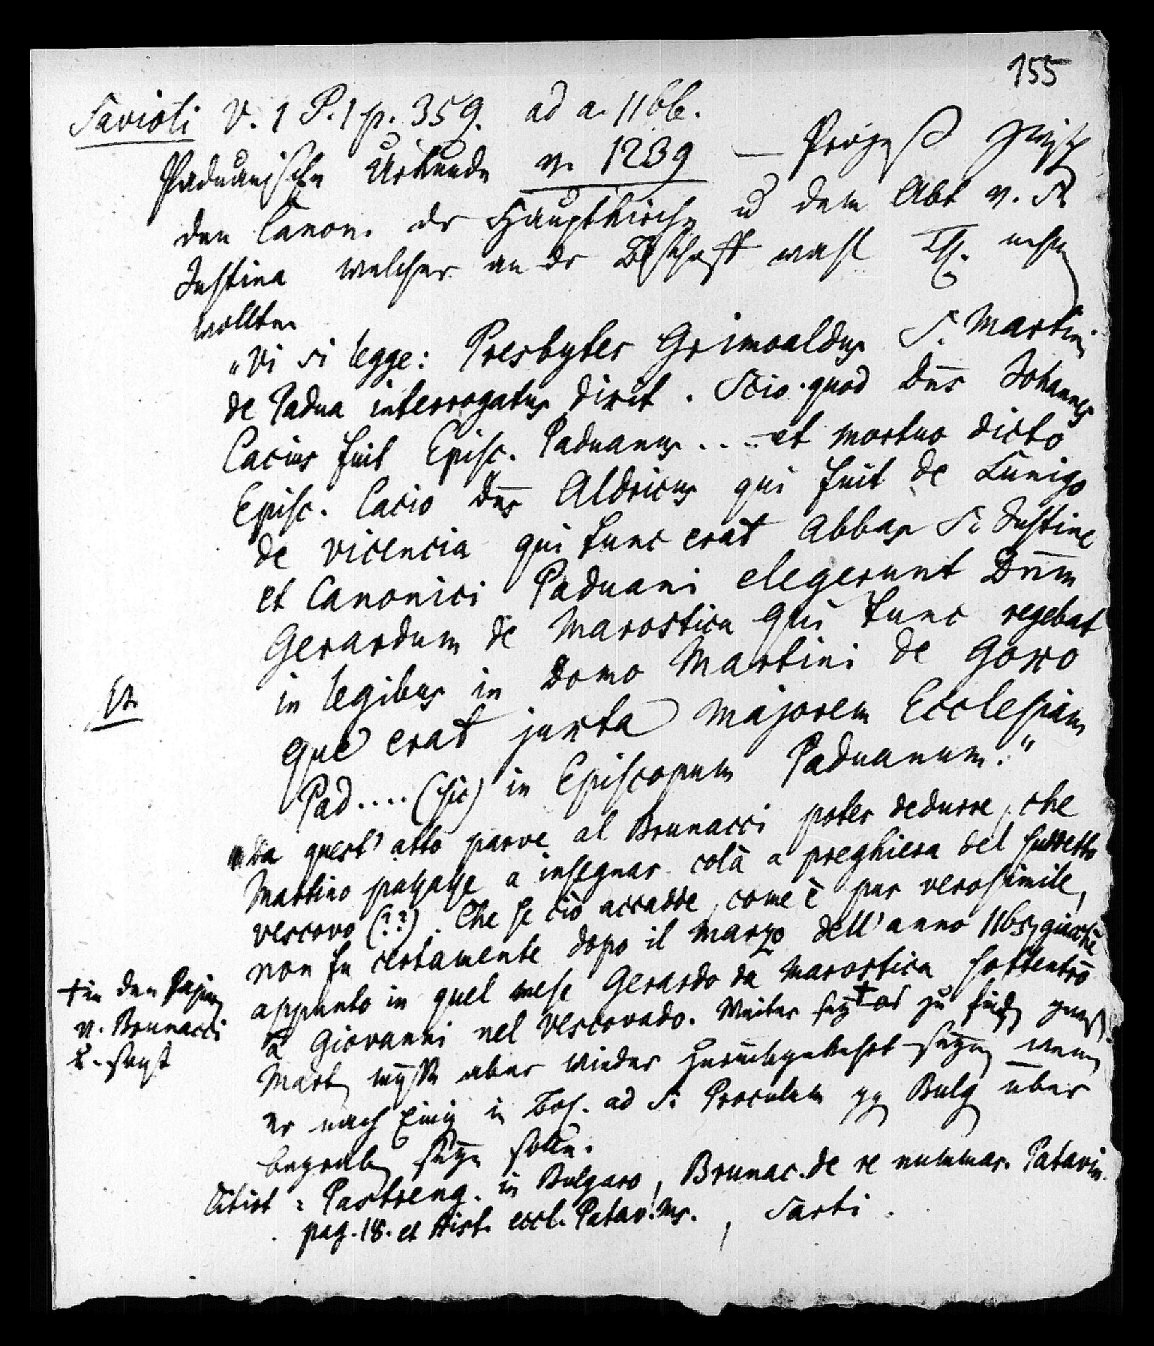 155
Savioli V. 1 P. 1 p. 359. ad a. 1166.
Paduanische Urkunde v. 1239 — Prozeß zwisch
den Canon. der Hauptkirche u dem Abt v. S.
Justina welcher an der Bischoff wahl Th. nehm
wollte
"Vi si legge: Presbyter Grimoaldus S. Martini
de Padua interrogatus dixit. Scio quod Dns Johannes
Cacius fuit Episc. Paduanus .... et mortuo dicto
Episc. Cacio Dns Aldricus qui fuit de Lunigo
de Vicencia qui tunc erat Abbas S. Justine
et Canonici Paduani elegerunt Dnm
Gerardum de Marostica qui tunc regebat
in legibus in Domo Martini de Goxo
que erat juxta Majorem Ecclesiam
Pad.... (sic) in Episcopum Paduanum."
"Da quest' atto parve al Brunacci poter dedurre, che
Martino passasse a insegnar colà a preghiera del suddetto
vescovo (??). Che se ciò accadde, come è pur verosimile,
non fu certamente dopo il Marzo dell' anno 1165, giacchè
appunto in quel mese Gerardo da Marostica sottentrò
a Giovanni nel Vescovado. Weiter sey † as zu find
Mart müßte aber wieder zurückgekehrt seyn wenn
er nach Einig in Bol. ad S. Proculum gg Bulg über
begraben seyn solle.
Citirt: Pastreng. in Bulgaro, Brunac. de re nummar. Patavin.
pag. 18. et Hist. eccl. Patav. Ms., Sarti.
† in den
v. Brunacci
sagt